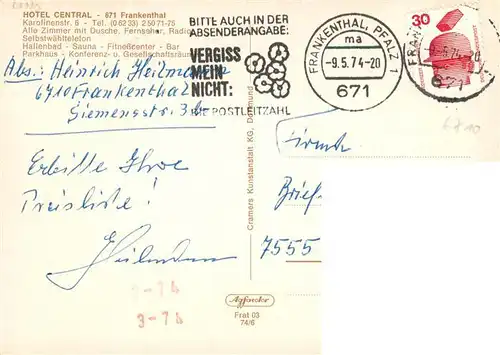 HOTEL CENTRAL - 671 Frankenthal
Karolinenstr. 6 - Tel. (0 62 33) 2 50 71-75
Alle Zimmer mit Dusche, Fernseher, Radio
Selbstwähltelefon
Hallenbad - Sauna - Fitnefcenter - Bar
Parkhaus - Konferenz- u. Gesellschaftsräume
Abs.: Heinrich Heilmann
6710 Frankenthal
Siemensstr.
BITTE AUCH IN DER
ABSENDERANGABE:
VERGISS
MEIN
NICHT:
DIE POSTLEITZAHL
FRANKENTHAL, PFALZ 1
ma
-9.5.74-20
671
30
-9.5.74-20
671
6710
Erbitte Ihre
Preisliste!
Heilmann
Firma
Brief
7555
Cramers Kunstanstalt KG, Dortmund
3-74
3-74
Agfacolor
Frat 03
74/6